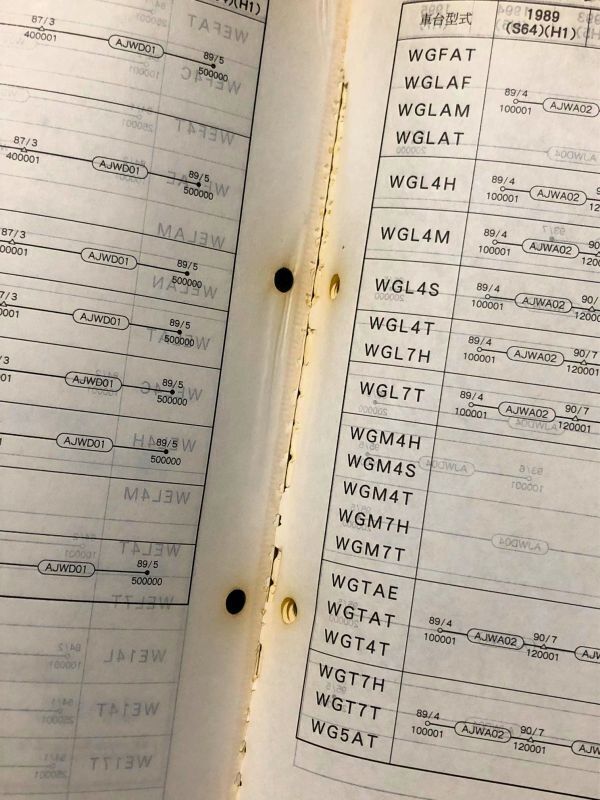 (H1)
87/3
400001
AJWD01
89/5
500000
87/3
400001
AJWD01
89/5
500000
87/3
AJWD01
89/5
500000
7/3
AJWD01
89/5
500000
AJWD01
89/5
500000
AJWD01
89/5
500000
AJWD01
89/5
500000
車台型式
1989
(S64)(H1)
WGFAT
WGLAF
WGLAM
WGLAT
89/4
100001
AJWA02
WGL4H
89/4
100001
AJWA02
WGL4M
89/4
100001
AJWA02
WGL4S
89/4
100001
AJWA02
WGL4T
WGL7H
89/4
100001
AJWA02
90/7
120001
WGL7T
89/4
100001
AJWA02
90/7
120001
WGM4H
WGM4S
WGM4T
WGM7H
WGM7T
WGTAE
WGTAT
WGT4T
89/4
100001
AJWA02
90/7
120001
WGT7H
WGT7T
WG5AT
89/4
100001
AJWA02
90/7
120001